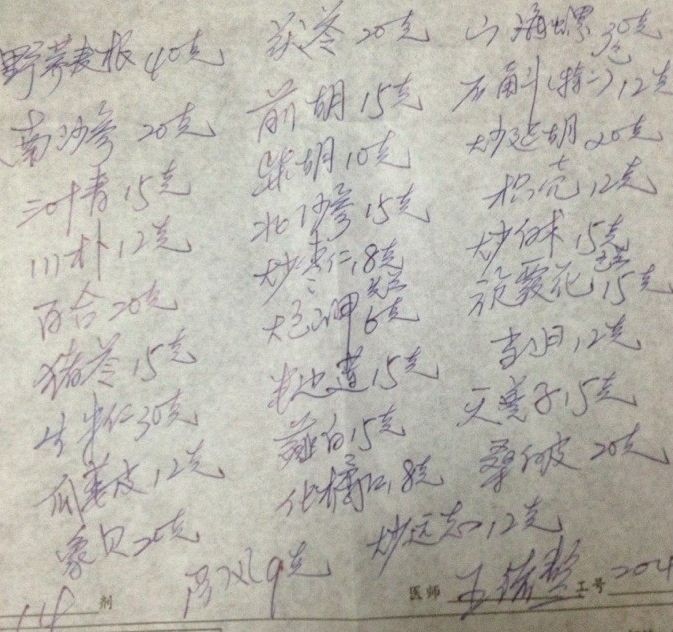 野荞麦根40克 茯苓20克 山海螺30克
南沙参20克 前胡15克 石斛(特二)12克
三叶青15克 柴胡10克 炒延胡20克
川朴12克 北沙参15克 枳壳12克
百合20克 炒枣仁18克 炒白术15克
猪苓15克 6克 旋覆花15克
生米仁30克 半边莲15克 当归12克
瓜蒌皮12克 薤白15克 15克
象贝20克 化橘红18克 桑白皮20克
9克 炒远志12克
14 剂 医师 工号 204